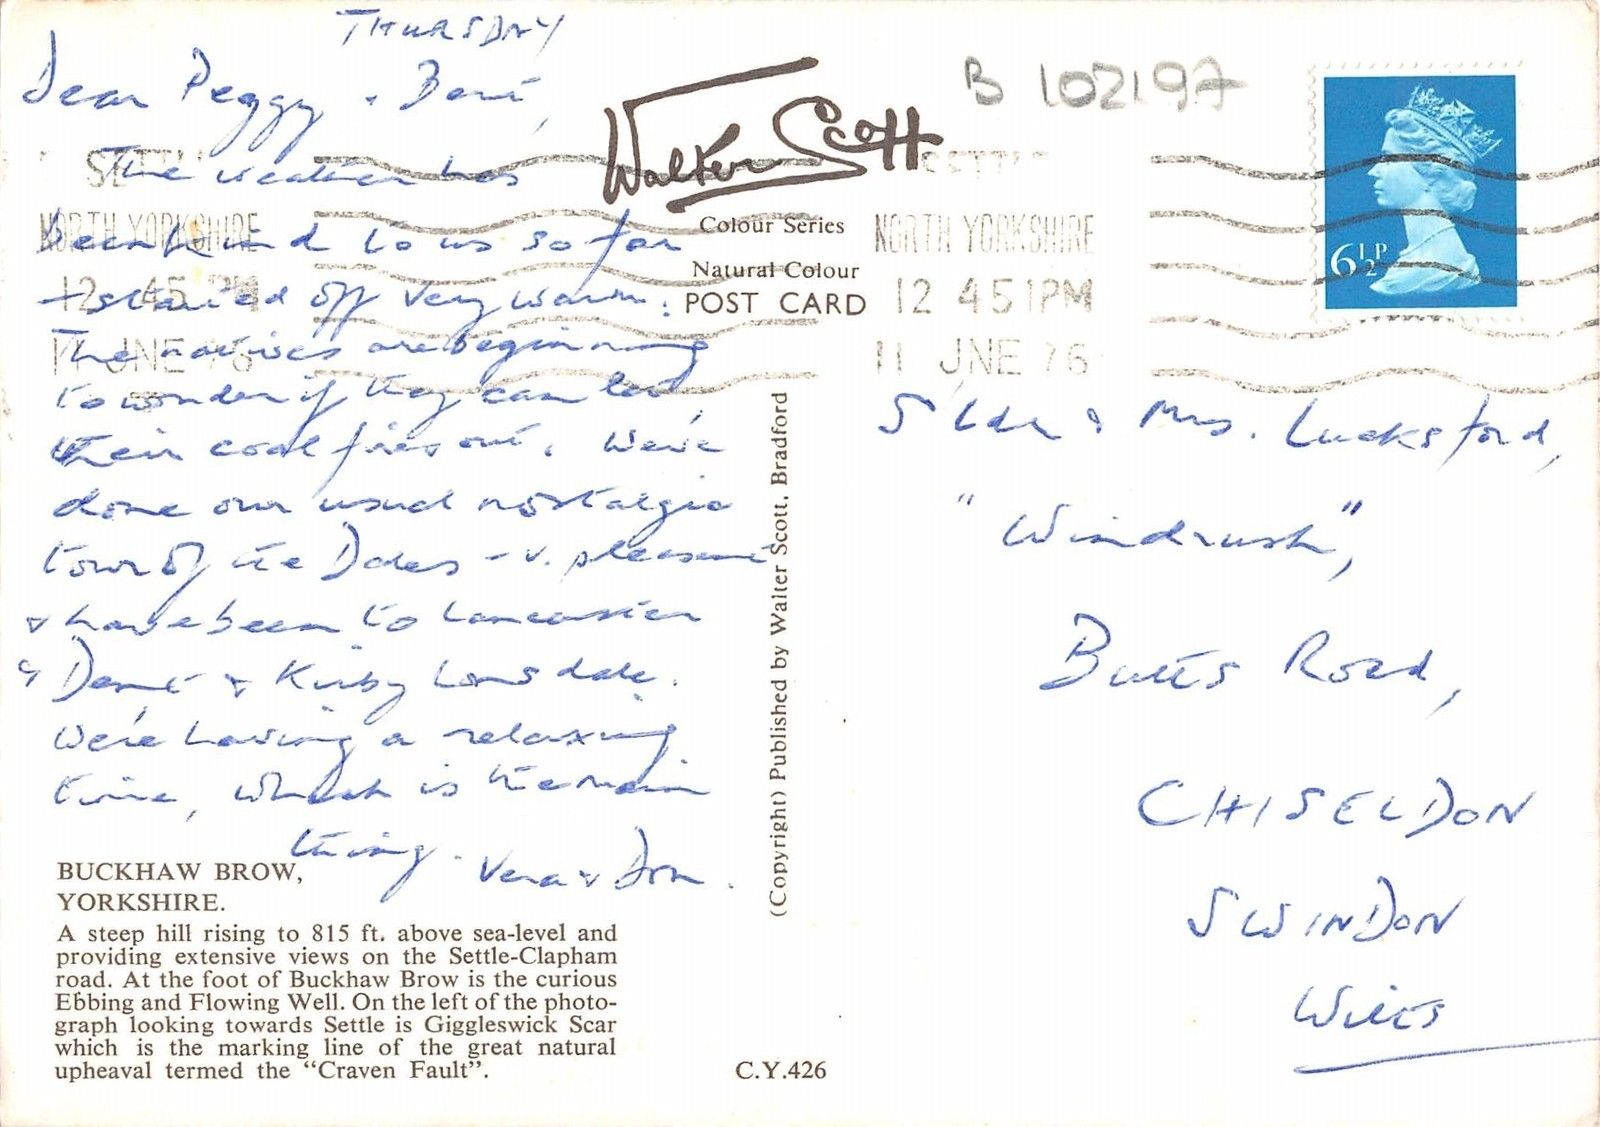 THURSDAY
Dear Peggy & Bert,
The weather has
been kind to us so far
+ started off very warm.
The natives are beginning
to wonder if they can let
their coal fires out. We've
done our usual nostalgic
tour of the Dales - v. pleasant
& have been to Lancaster
& Dent & Kirby Lonsdale.
We're having a relaxing
time, which is the main
thing. Vera & Don.
BUCKHAW BROW,
YORKSHIRE.
A steep hill rising to 815 ft. above sea-level and
providing extensive views on the Settle-Clapham
road. At the foot of Buckhaw Brow is the curious
Ebbing and Flowing Well. On the left of the photo-
graph looking towards Settle is Giggleswick Scar
which is the marking line of the great natural
upheaval termed the "Craven Fault".
Walter Scott
Colour Series
Natural Colour
POST CARD
(Copyright) Published by Walter Scott, Bradford
C.Y.426
B 102197
SETTLE
NORTH YORKSHIRE
12 45 PM
11 JNE 76
SETTLE
NORTH YORKSHIRE
12 45 1PM
11 JNE 76
6½P
& Mrs. Lucksford,
"Windrush",
Butts Road,
CHISELDON
SWINDON
WILTS